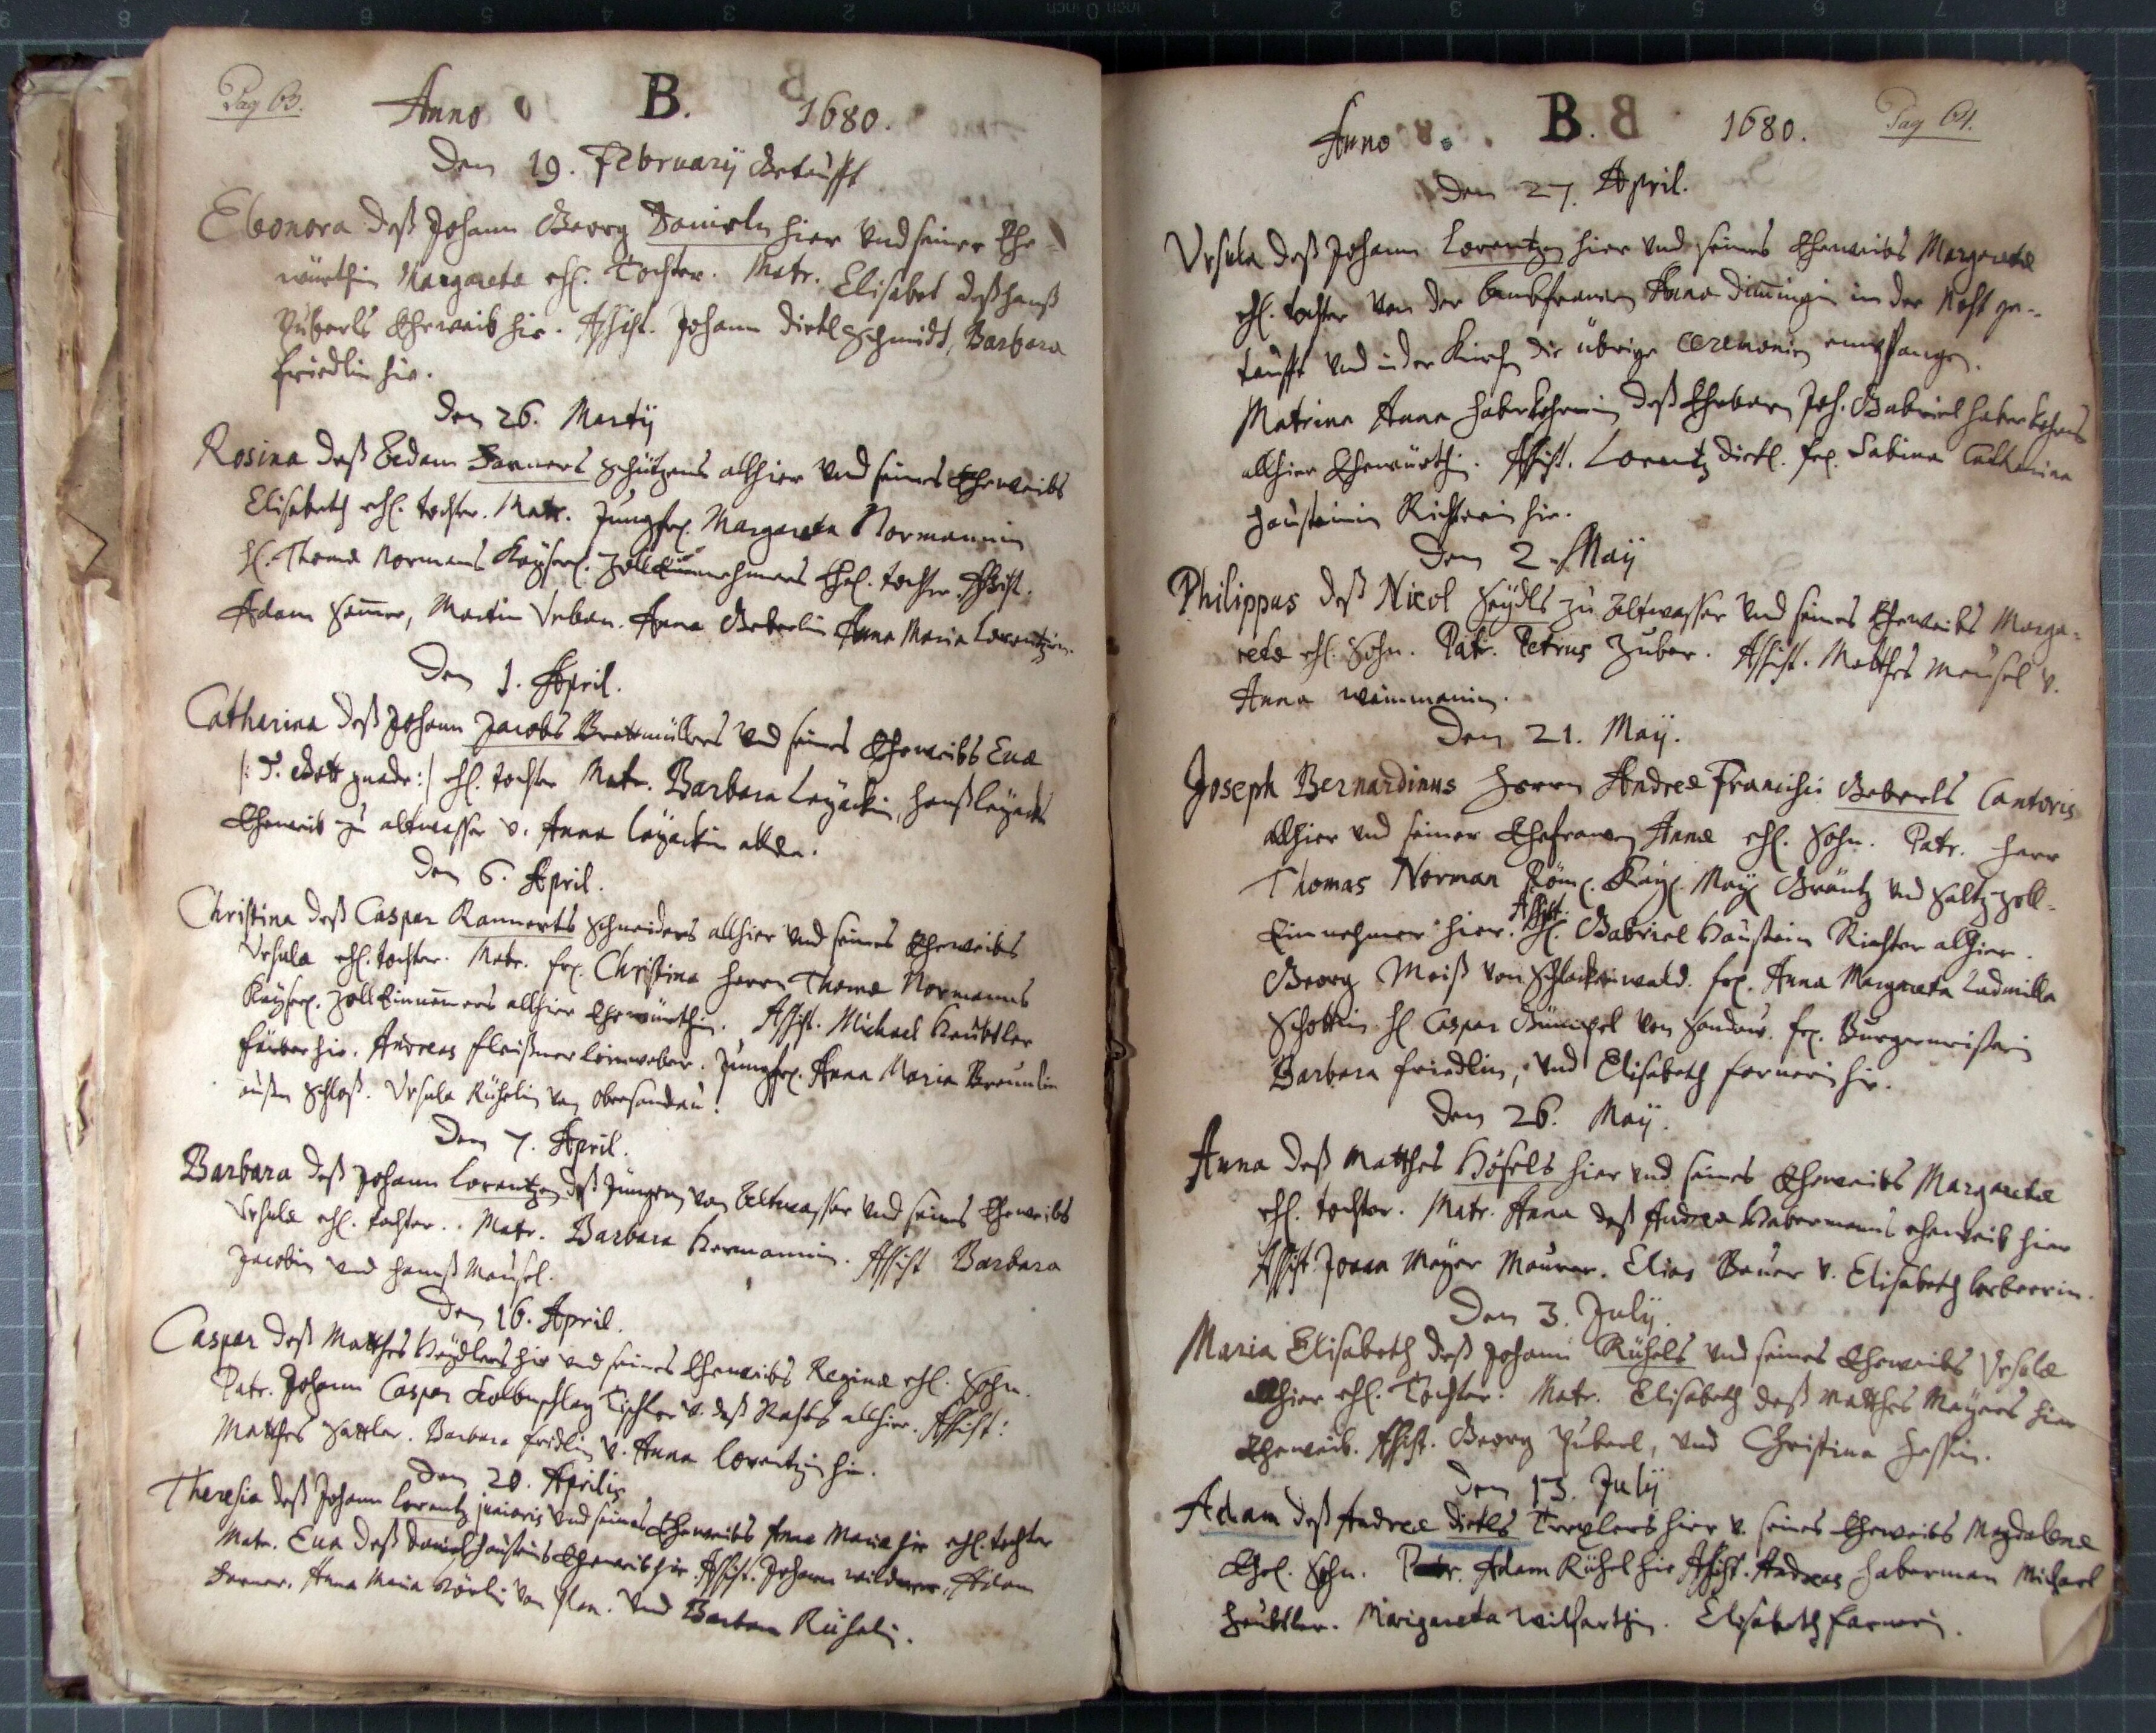 Pag 63.
Anno B. 1680.
Den 19. Februarij Getaufft
Eleonora deß Johann Georg Daniels hier vnd seiner Ehe=
würthin Margaretæ ehl. Tochter. Matr. Elisabet deß hanß
Zuberls Eheweib hie. Assist. Johann dietl Schmidt, Barbara
friedlin hie.
Den 26. Martij
Rosina deß Adam Farners Schützens allhier vnd seines Eheweibs
Elisabeth ehl. tochter. Matr. Jungfr. Margareta Normannin
H. Thomæ Normans Kayserl. Zolleinnehmers Ehel. tochter. Assist.
Adam, Martin Vrban. Anna Geberlin Anna Maria Lorentzin.
Den 1. April.
Catharina deß Johann Jacobs Brettmüllers vnd seines Eheweibs Euæ
/: d. Gott gnade :/ ehl. tochter Matr. Barbara Layackin, hanß Layacks
Eheweib zu altwasser v. Anna Layackin allda.
Den 6. April.
Christina deß Caspar Rannerts Schneiders allhier vnd seines Eheweibs
Vrsulæ ehl. tochter. Matr. fr. Christina herrn Thomæ Normanns
Kayserl. Zolleinnemers allhier Ehewürthin. Assist. Michael Heubtler
färber hie. Andreas fleißner leinweber. Jungfr. Anna Maria Braunlin
außm Schloß. Vrsula Rühelin von obersandau.
Den 7. April.
Barbara deß Johann Lorentzen deß Jüngern von Altwasser vnd seines Eheweibs
Vrsulæ ehl. tochter. Matr. Barbara Hermannin. Assist Barbara
Jacobin vnd hannß Meusel.
Den 16. April.
Caspar deß Matthes Heydlers hie vnd seines Eheweibs Reginæ ehl. Sohn.
Patr. Johann Caspar Kolbenschlag Tischler v. deß Rahts allhier. Assist:
Matthes Sattler. Barbara fridlin v. Anna Lorentzin hie.
Den 20. Aprilis
Theresia deß Johann Lorentz junioris vnd seines Eheweibs Anna Maria hie ehl. tochter
Matr. Eua deß Daniel hausteins Eheweib hie. Assist. Johann wildner, Adam
Farner. Anna Maria von Plan. vnd Barbara Rühelin.
Pag 64.
Anno B. 1680.
Den 27. April.
Vrsula deß Johann Lorentzen hier vnd seines Eheweibs Margaretæ
ehl. tochter von der Anna in der Noht ge=
taufft vnd in der Kirch die übrige ceremonien empfangen.
Matrina Anna haberkohrnin deß Ehrbaren Joh. Gabriel haberkohrns
allhier Ehewürthin. Assist. Lorentz dietl. fr. Sabina Catharina
Hausteinin Richterin hie.
Den 2. Maij
Philippus deß Nicol Heydls zu Altwasser vnd seines Eheweibs Marga=
retæ ehl. Sohn. Patr. Petrus Zuber. Assist. Matthes Meusel v.
Anna weinmannin.
Den 21. Maij.
Joseph Bernardinus Herrn Andreæ Francisci Geberls Cantoris
allhier vnd seiner Ehefrawen Annæ ehl. Sohn. Patr. herr
Thomas Norman Röm. Kay. May. Gräntz vnd Saltz Zoll=
Einnehmer hier. Assist. H. Gabriel Haustein Richter alhier.
Georg Meiß von Schlackenwald. fr. Anna Margareta Ludmilla
Schottin H. Caspar Gümpel von Sandau. fr. Burgermeisterin
Barbara friedlin, vnd Elisabeth farnerin hie.
Den 26. Maij.
Anna deß Matthes Hösels hier vnd seines Eheweibs Margaretæ
ehl. tochter. Matr. Anna deß Andreæ Habermanns eheweib hier
Assist. Mayer Maurer. Elias Bauer v. Elisabeth lorbeerin.
Den 3. Julij.
Maria Elisabeth deß Johann Rühels vnd seines Eheweibs Vrsulæ
allhier ehl. Tochter. Matr. Elisabeth deß Matthes Mayers hier
Eheweib. Assist. Georg Zuberl, vnd Christina Hessin.
Den 13. Julij
Adam deß Andreæ dietls hier v. seines Eheweibs Magdalenæ
Ehel. Sohn. Patr. Adam Rühel hie Assist. Andreas Haberman Michael
Heubtler. Marigareta Elisabeth Farnerin.